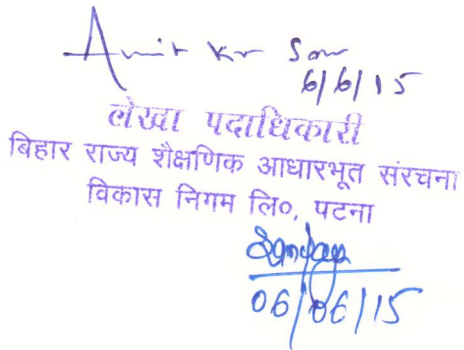 Amit Kr
6/6/15
लेखा पदाधिकारी
बिहार राज्य शैक्षणिक आधारभूत संरचना
विकास निगम लि०, पटना
Sanjay
06/06/15